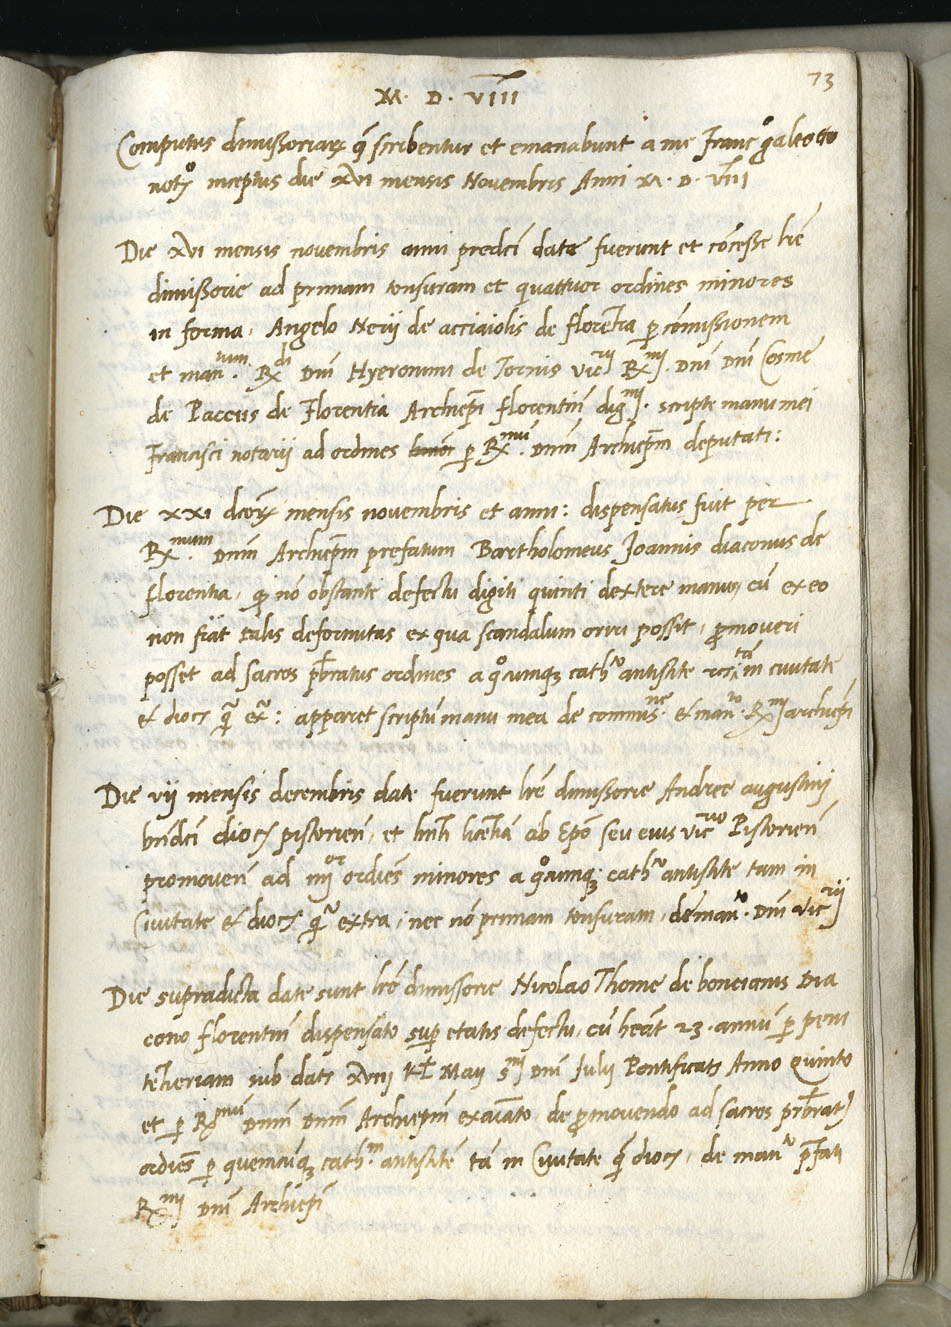 73
M. D. VIIII
Computus dimissoriarꝝ q̃ scribentur et emanabunt a me Franc.o galeotto
notꝭo inceptus die XVI mensis Novembris Anni M. D. VIIII
Die XVI mensis novembris anni predc̃i date fuerunt et cõcesse lr̃e
dimissorie ad primam tonsuram et quattuor ordines minores
in forma, Angelo Nerij de acciaiolis de florent̃ia ꝑ cõmissionem
et man.tum Rx di Dñi Hyeronimi de Tornis vic rij Rx mj. Dñi Dñi Cosme
de Paccus de Florentia Archiep̃i florentiñ dig mj. scripte manu mei
Francisci notarij ad ordines ꝑ Rx mũ. dñm Archiep̃m deputati:
Die XXI dc̃orꝝ mensis novembris et anni: dispensatus fuit per
Rx mum. Dñm Archiep̃m prefatum Bartholomeus Joannis diaconus de
florentia, ꝙ nõ obstante defectu digiti quinti dextere manus, cũ ex eo
non fiat talis deformitas ex qua scandalum oriri possit, ꝓmoveri
posset ad sacros p̃rbratus ordines a qo͛cumqꝫ cath.co antistite tã in civitate
et diocꝭ q̃ ex̃: apparet scriptũ manu mea de commis.ne et man.to Rx mj archiep̃i
Die vij mensis decembris date fuerunt lr̃e dimissorie Andree augustinij
bñdc̃i diocꝭ pistorieñ, et hñti licẽtiã ab Ep̃o seu eius vic.rio Pistorieñ
promoveñ ad iiij or ordiẽs minores a qo͛cumqꝫ cath.co antistite tam in
Civitate et diocꝭ q̃ extra, nec nõ primam tonsuram, de man.to Dñi vic rij
Die supradicta date sunt lr̃e dimissorie Nicolao Thome de boncianis Dia
cono florentiñ dispensato suꝑ etatis defectu, cũ heãt 23. annũ ꝑ peni
tẽtieriam sub datꝭ XVIII kl̃ Maij S mj Dñi Julij Pontificatꝭ Anno Quinto
et ꝑ Rx mũ Dñm Dñm Archiep̃m exaiãto, de ꝓmovendo ad sacros p̃rbratꝭ
ordiẽs ꝑ quemcũqꝫ cath.m antistitẽ tã in Civitate q̃ diocꝭ, de man.to p̃fati
Rx mj Dñi Archiep̃i